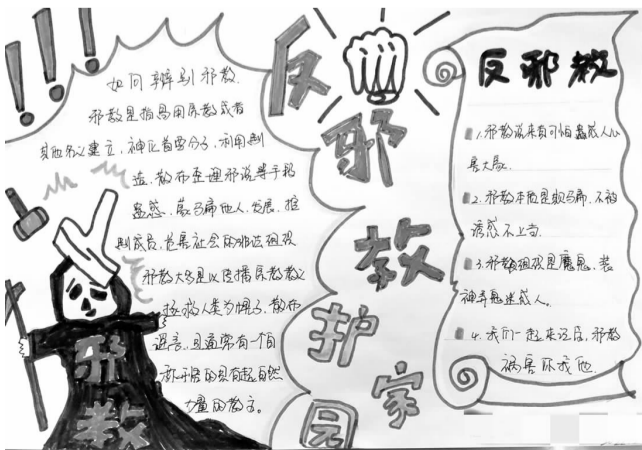 如何辨别邪教
邪教是指冒用宗教或者
其他名义建立,神化首要分子,利用制
造、散布歪理邪说等手段
蛊惑、蒙骗他人,发展、控
制成员,危害社会的非法组织
邪教大多是以传播宗教教义
拯救人类为幌子,散布
谣言,且通常有一个自
称开悟的具有超自然
力量的教主。
反
邪
教
护
家
园
邪
教
反邪教
1.邪教说来真可怕蛊惑人心
害大家
2.邪教本质是欺骗,不被
诱惑不上当
3.邪教组织是魔鬼,装
神弄鬼迷惑人。
4.我们一起来远离,邪教
祸害你我他